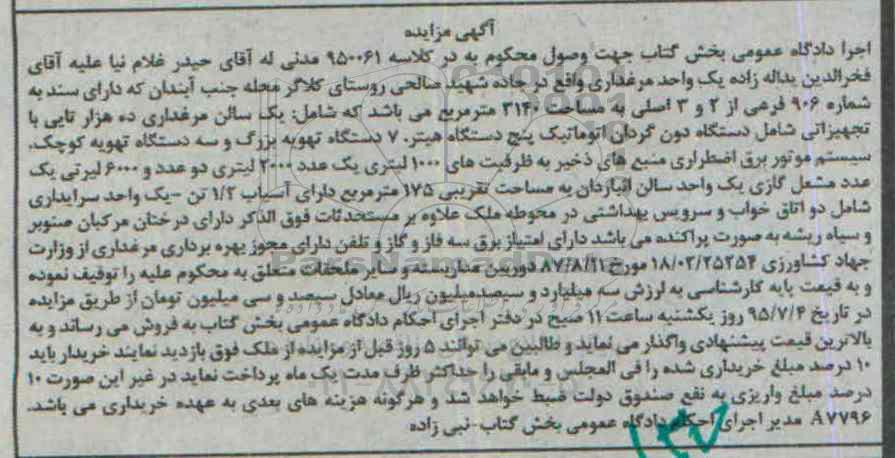 آگهی مزایده
اجرا دادگاه عمومی بخش گتاب جهت وصول محکوم به در کلاسه ۹۵۰۰۶۱ مدنی له آقای حیدر غلام نیا علیه آقای
فخرالدین یداله زاده یک واحد مرغداری واقع در جاده شهید صالحی روستای کلاگر محله جنب آبندان که دارای سند به
شماره ۹۰۶ فرعی از ۲ و ۳ اصلی به مساحت ۳۱۴۰ مترمربع می باشد که شامل: یک سالن مرغداری ده هزار تایی با
تجهیزاتی شامل دستگاه دون گردان اتوماتیک پنج دستگاه هیتر. ۷ دستگاه تهویه بزرگ و سه دستگاه تهویه کوچک.
سیستم موتور برق اضطراری منبع های ذخیر به ظرفیت های ۱۰۰۰ لیتری یک عدد ۲۰۰۰ لیتری دو عدد و ۶۰۰۰ لیرتی یک
عدد مشعل گازی یک واحد سالن انباردان به مساحت تقریبی ۱۷۵ مترمربع دارای آسیاب ۱/۲ تن -یک واحد سرایداری
شامل دو اتاق خواب و سرویس بهداشتی در محوطه ملک علاوه بر مستحدثات فوق الذکر دارای درختان مرکبان صنوبر
و سیاه ریشه به صورت پراکنده می باشد دارای امتیاز برق سه فاز و گاز و تلفن دارای مجوز بهره برداری مرغداری از وزارت
جهاد کشاورزی ۱۸/۰۲/۲۵۲۵۴ مورخ ۸۷/۸/۱۱ دوربین مداربسته و سایر ملحقات متعلق به محکوم علیه را توقیف نموده
و به قیمت پایه کارشناسی به لرزش سه میلیارد و سیصدمیلیون ریال معادل سیصد و سی میلیون تومان از طریق مزایده
در تاریخ ۹۵/۷/۴ روز یکشنبه ساعت ۱۱ صبح در دفتر اجرای احکام دادگاه عمومی بخش گتاب به فروش می رساند و به
بالاترین قیمت پیشنهادی واگذار می نماید و طالبین می توانند ۵ روز قبل از مزایده از ملک فوق بازدید نمایند خریدار باید
۱۰ درصد مبلغ خریداری شده را فی المجلس و مابقی را حداکثر ظرف مدت یک ماه پرداخت نماید در غیر این صورت ۱۰
درصد مبلغ واریزی به نفع صندوق دولت ضبط خواهد شد و هرگونه هزینه های بعدی به عهده خریداری می باشد.
A۷۷۹۶ مدیر اجرای احکام دادگاه عمومی بخش گتاب-نبی زاده
ParsNamadData